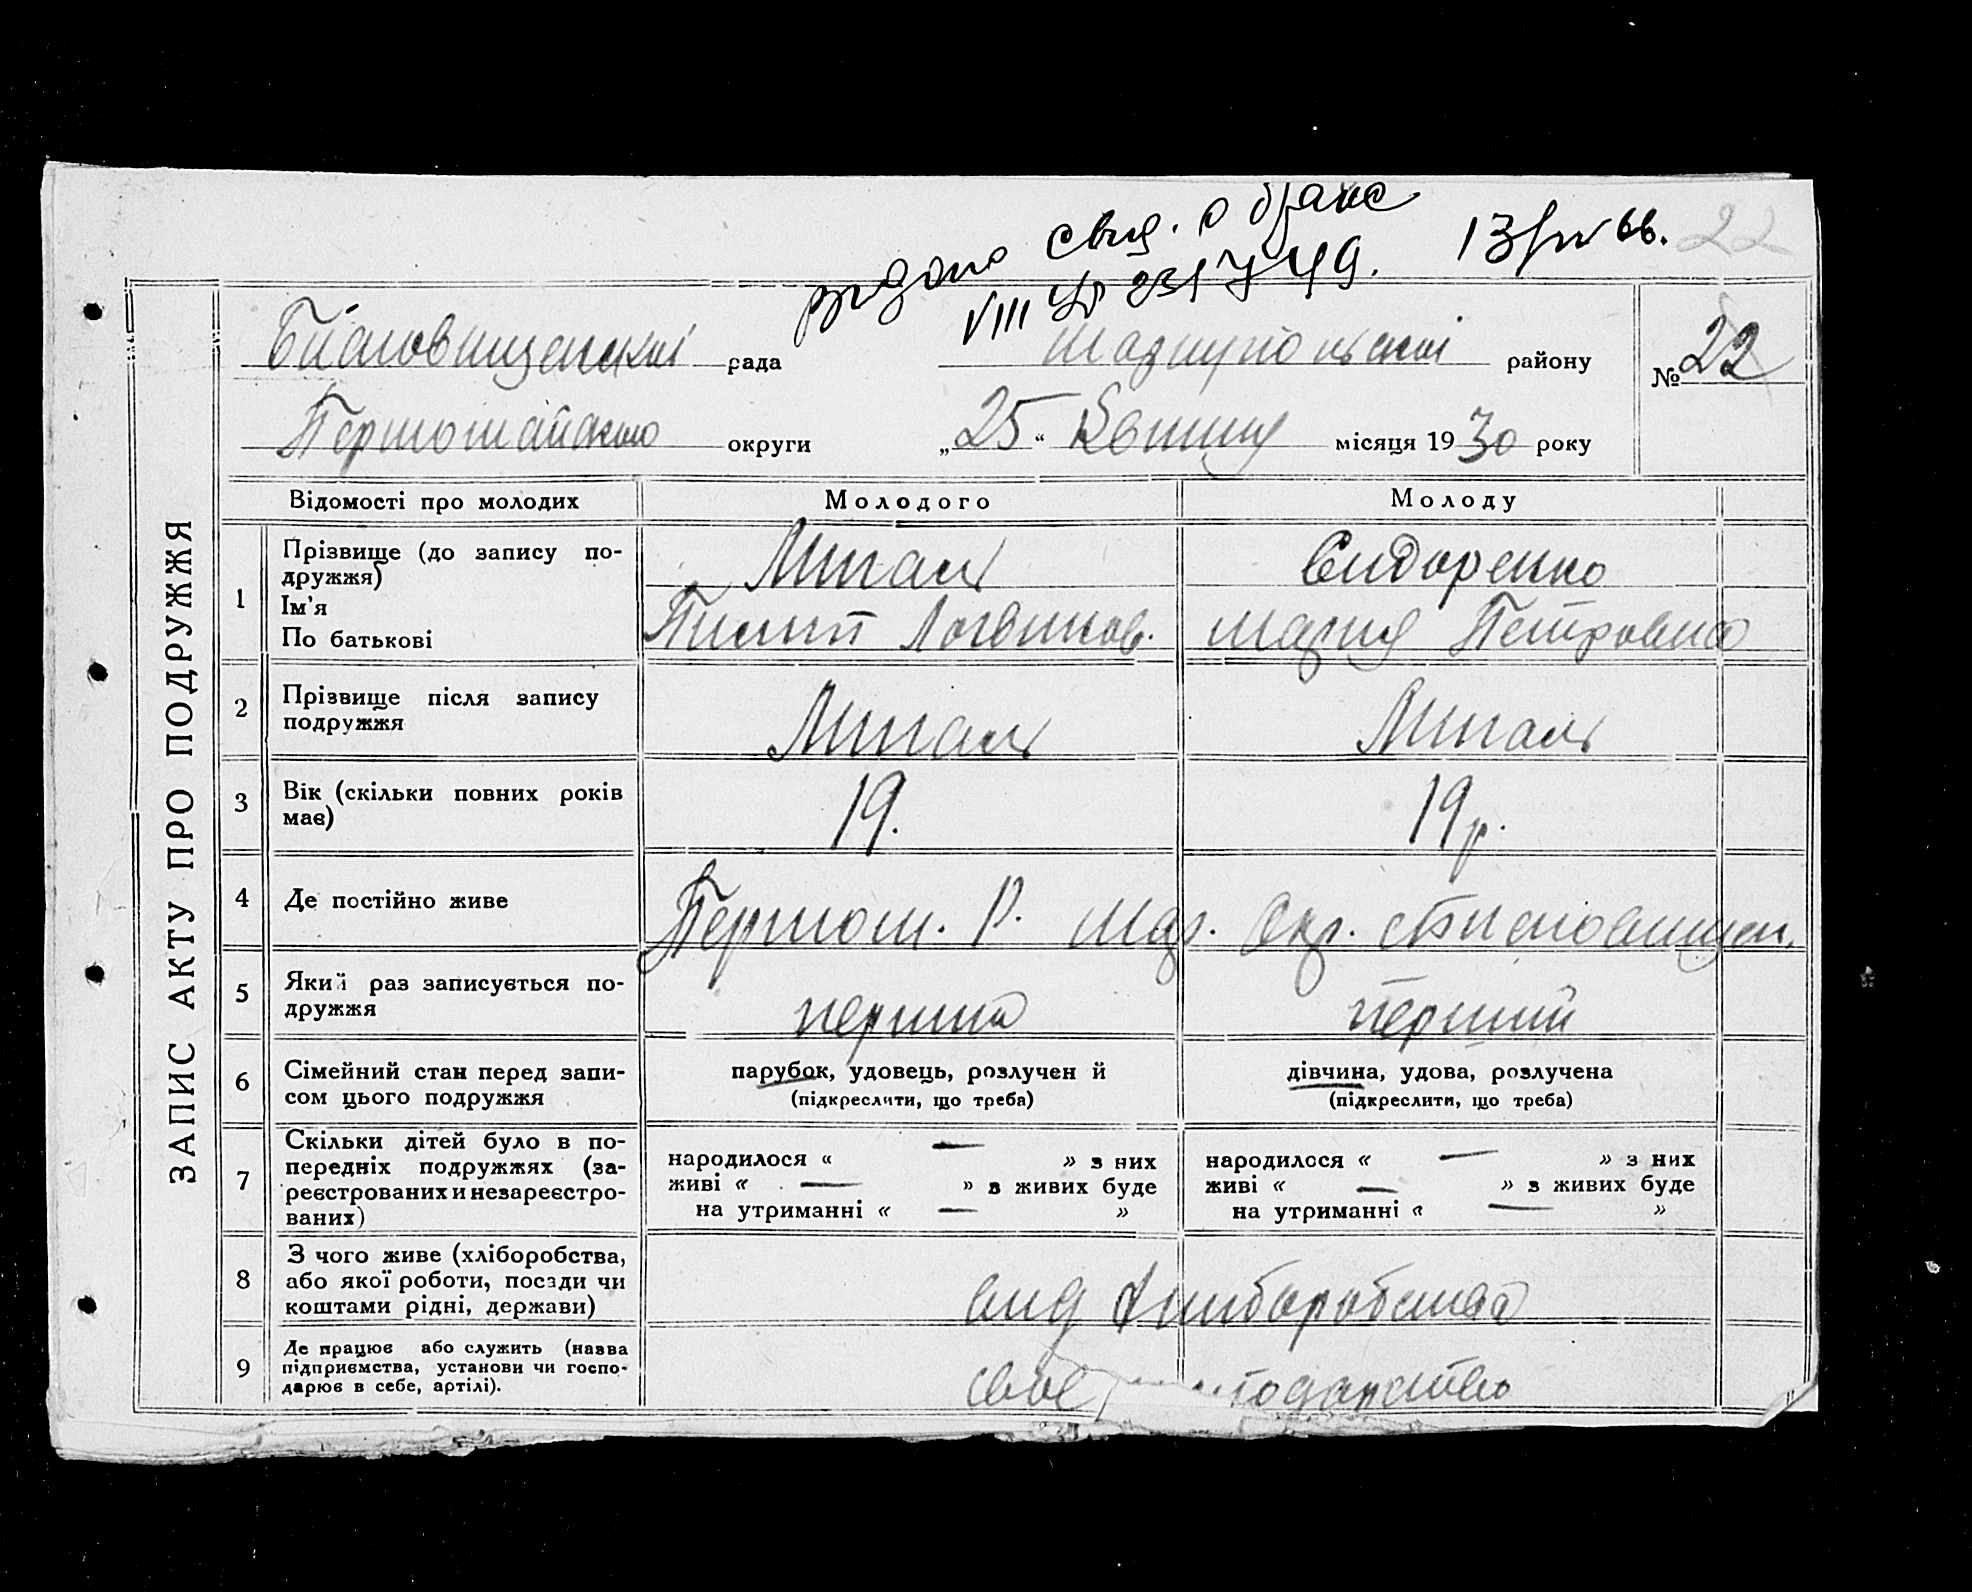 видано свид. о браке
13/IV 66. 22
VIII 231749.
рада району
№ 22
округи „25“ Квітня місяця 1930 року
ЗАПИС АКТУ ПРО ПОДРУЖЖЯ
Відомості про молодих Молодого Молоду
1 Прізвище (до запису по-
дружжя)
Ім'я
По батькові
Сидоренко
Пилип Логвинов. Мария Петровна
2 Прізвище після запису
подружжя
3 Вік (скільки повних років
має)
19. 19 р.
4 Де постійно живе
Першом. Р. Окр.
5 Який раз записується по-
дружжя
перший перший
6 Сімейний стан перед запи-
сом цього подружжя
парубок, удовець, розлучен й
(підкреслити, що треба)
дівчина, удова, розлучена
(підкреслити, що треба)
7 Скільки дітей було в по-
передніх подружжях (за-
реєстрованих и незареєстро-
ваних)
народилося « — » з них
живі « — » з живих буде
на утриманні « — »
народилося « — » з них
живі « — » з живих буде
на утриманні « — »
8 З чого живе (хліборобства,
або якої роботи, посади чи
коштами рідні, держави)
від хліборобства
9 Де працює або служить (назва
підприємства, установи чи госпо-
дарює в себе, артілі).
своє господарство